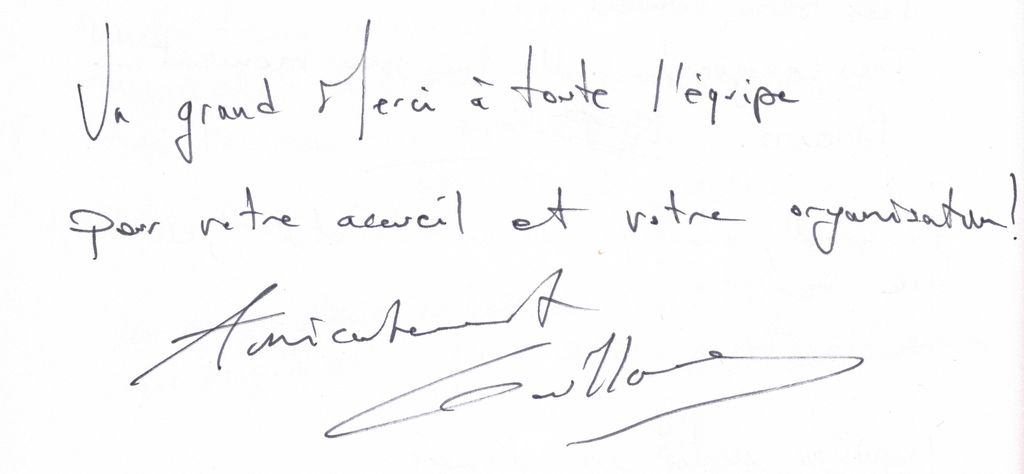 Un grand Merci à toute l'équipe
pour votre accueil et votre organisation!
Amicalement
Guillaume